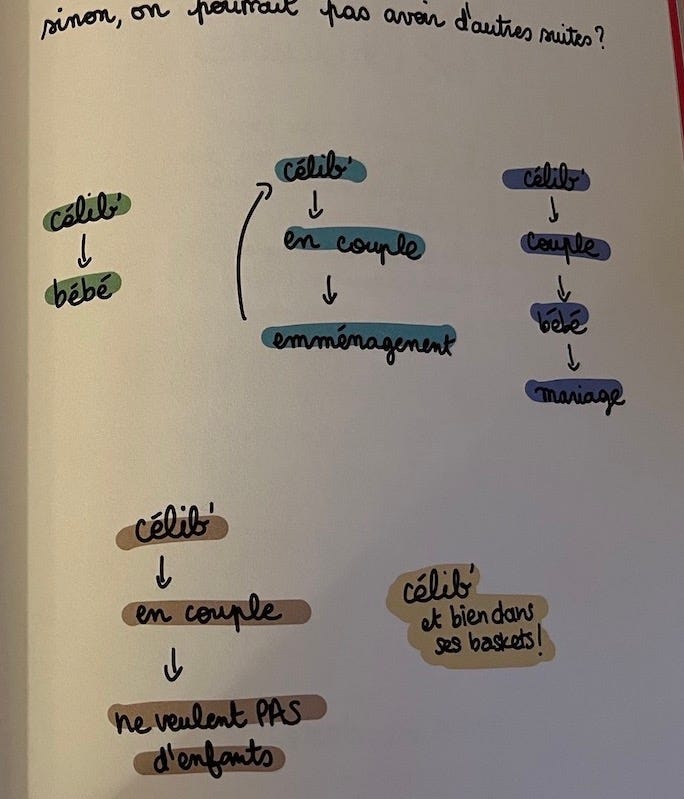 sinon, on pourrait pas avoir d'autres suites?
célib'
↓
bébé
célib'
↓
en couple
↓
emménagement
célib'
↓
couple
↓
bébé
↓
mariage
célib'
↓
en couple
↓
ne veulent PAS
d'enfants
célib'
et bien dans
ses baskets!